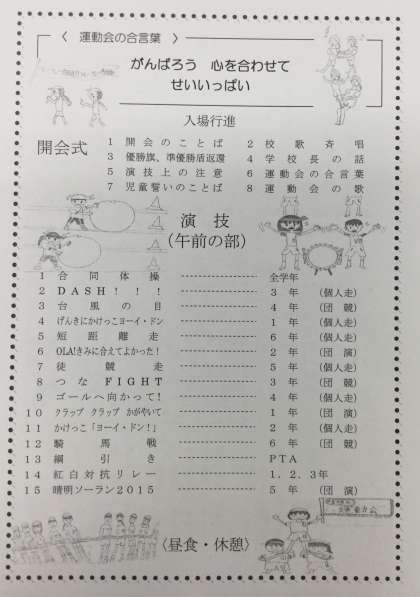 〈 運動会の合言葉 〉
がんばろう 心を合わせて
せいいっぱい
入場行進
開会式
1 開会のことば 2 校歌斉唱
3 優勝旗、準優勝盾返還 4 学校長の話
5 演技上の注意 6 運動会の合言葉
7 児童誓いのことば 8 運動会の歌
演技
(午前の部)
1 合同体操 全学年
2 DASH!!! 3年 (個人走)
3 台風の目 4年 (団競)
4 げんきにかけっこヨーイ・ドン 1年 (個人走)
5 短距離走 6年 (個人走)
6 OLA!きみに合えてよかった! 2年 (団演)
7 徒競走 5年 (個人走)
8 つなFIGHT 3年 (団競)
9 ゴールへ向かって! 4年 (個人走)
10 クラップ クラップ かがやいて 1年 (団演)
11 かけっこ「ヨーイ・ドン!」 2年 (個人走)
12 騎馬戦 6年 (団競)
13 綱引き PTA
14 紅白対抗リレー 1.2.3年
15 晴明ソーラン2015 5年 (団演)
〈昼食・休憩〉